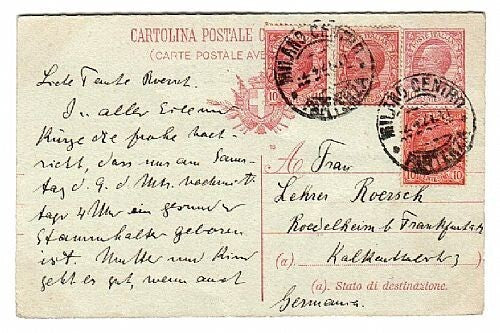 CARTOLINA POSTALE
(CARTE POSTALE
MILANO CENTRO
MILANO CENTRO
10
10
10
Liebe Tante Roersch.
In aller Eile und
Kürze die frohe Nach-
richt, dass uns am Sams-
tag d. 9. d. Mts. nachmit-
tags 4 Uhr ein gesunder
Stammhalter geboren
ist. Mutter und Kind
geht es gut, wenn auch
A Frau
Lehrer Roersch
Roedelheim b Frankfurt
(a).
(a). Stato di destinazione.
Germania.